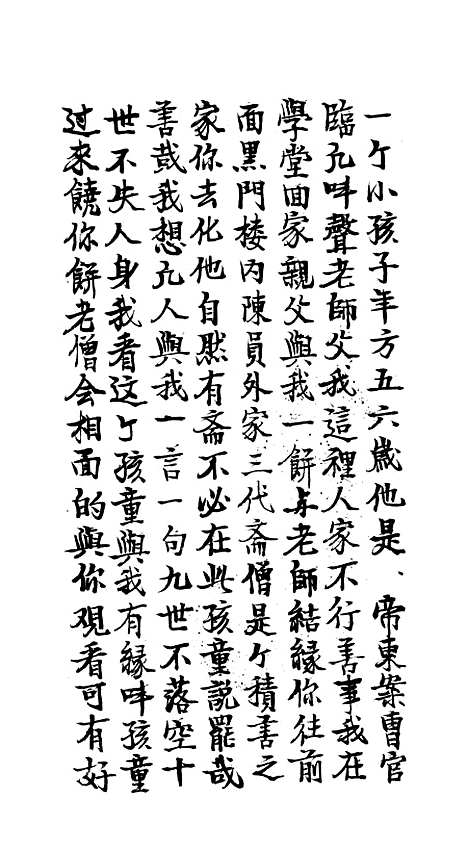 一个小孩子年方五六歲他是、帝東案曹官
臨凡呌聲老師父我這裡人家不行善事我在
學堂回家親父與我一餅与老師結緣你往前
面黑門楼内陳員外家三代斋僧是个積善之
家你去化他自然有斋不必在此孩童說罷哉
善哉我想凡人與我一言一句九世不落空十
世不失人身我看这个孩童與我有緣呌孩童
过來饒你餅老僧会相面的與你观看可有好